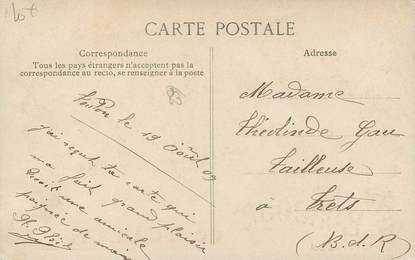 CARTE POSTALE
Correspondance
Tous les pays étrangers n'acceptent pas la
correspondance au recto, se renseigner à la poste
Adresse
Toulon le 19 août 09
J'ai reçu ta carte qui
ma fait grand plaisir
Reçoit une amicale
poignée de main
Madame
Théolinde Gau
Tailleuse
à Trets
(B.d.R)